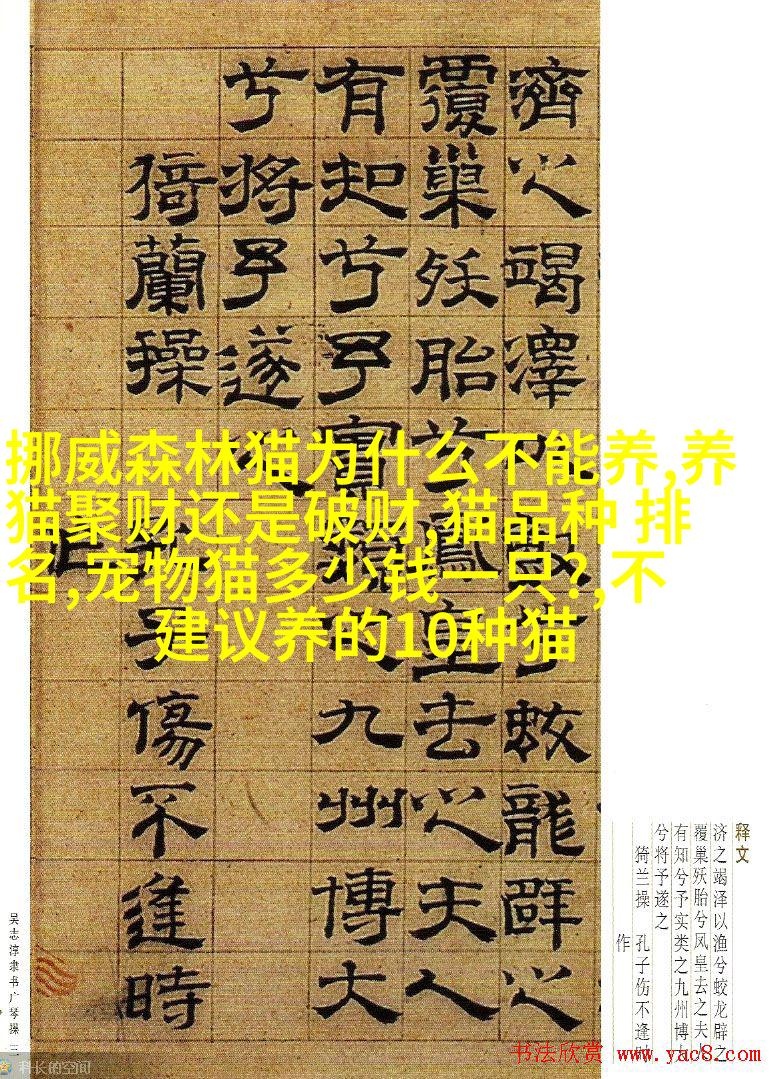 濟之竭澤兮蛟龍辟之
覆巢殀胎兮鳳皇去之夫人
有知兮予實類之九州博大
兮將予遂之
猗蘭操 子傷不逢時
作
挪威森林猫为什么不能养,养
猫聚财还是破财,猫品种 排
名,宠物猫多少钱一只?,不
建议养的10种猫
释文
济之竭泽以渔兮蛟龙辟之
覆巢殀胎兮凤皇去之夫
有知兮予实类之九州博
兮将予遂之
猗兰操 孔子伤不逢
作
吴志淳隶书广琴操 三
科长的空间
书法欣赏 www.yac8.com